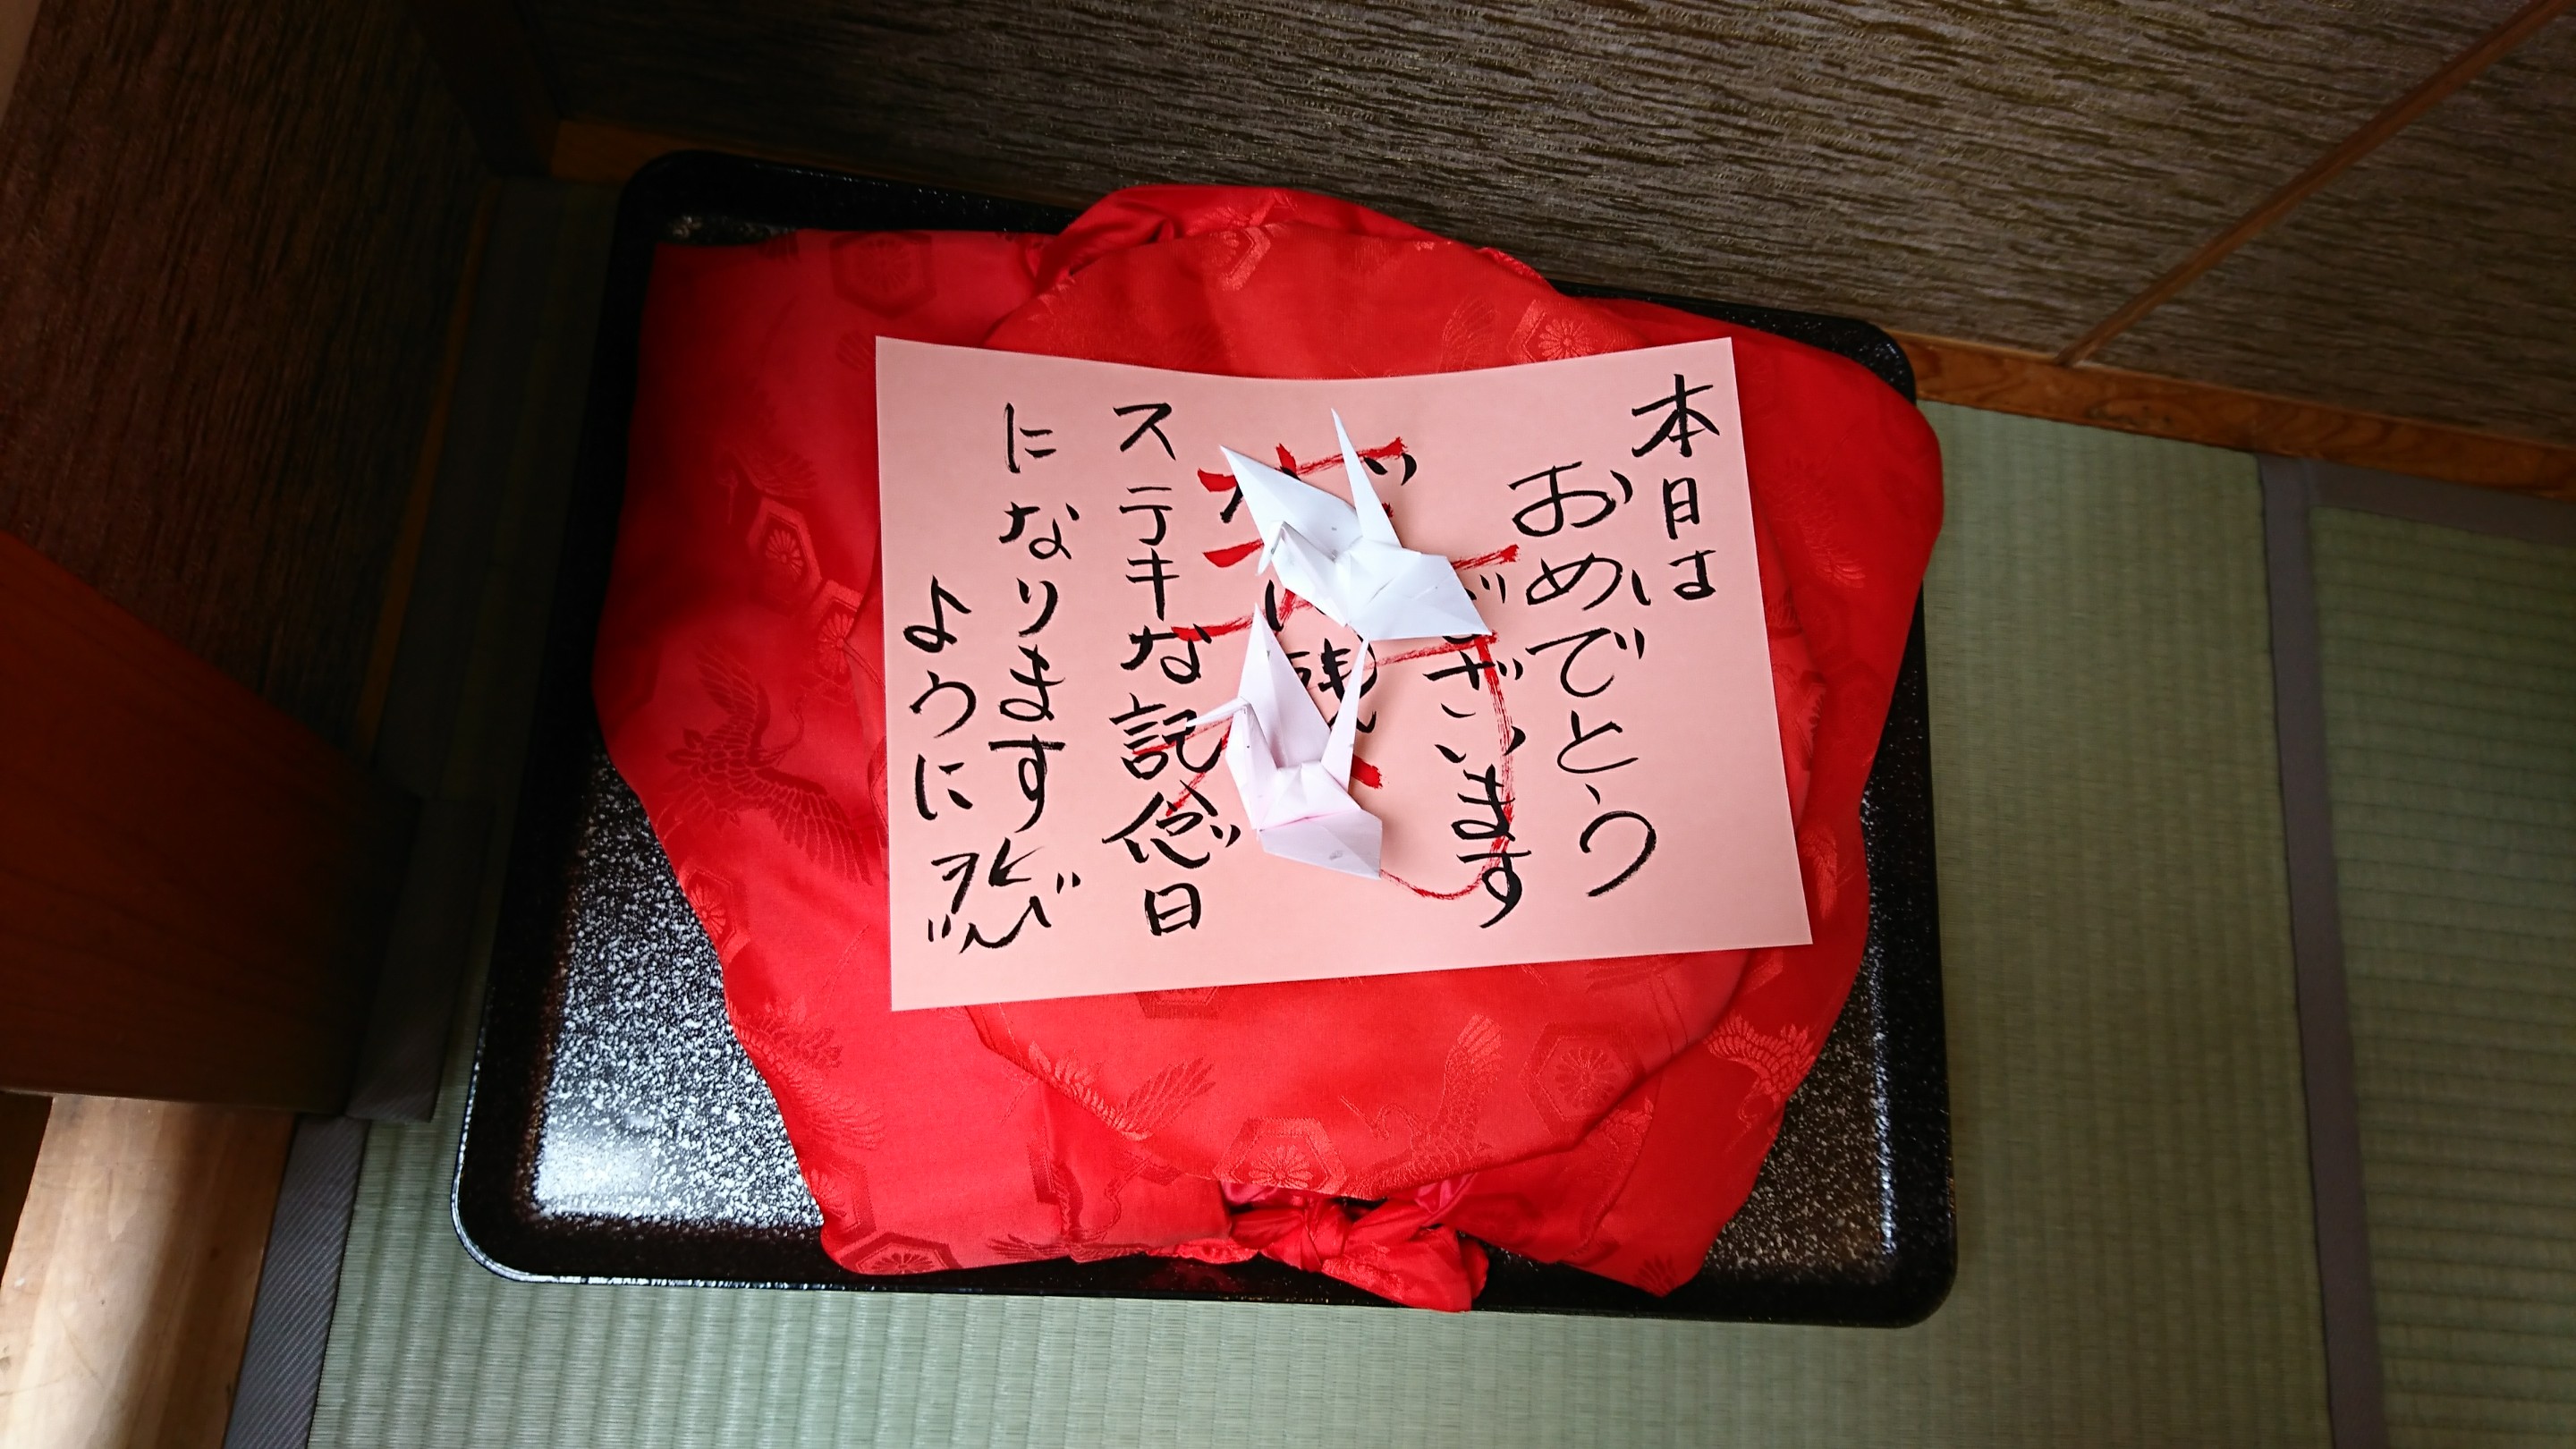 本日は
おめでとう
ございます
ステキな記念日
になります
ように